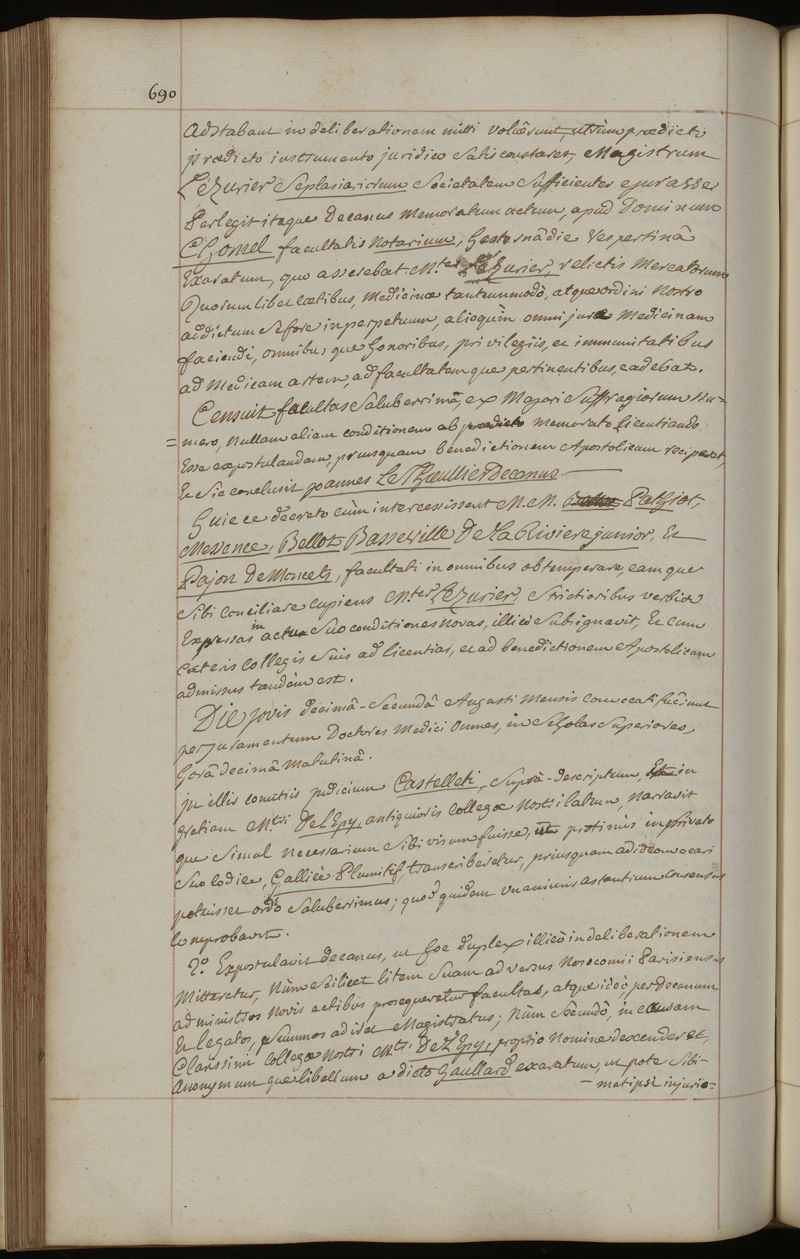 690
adstabant in deliberationem mitti voluêrunt, utrùm prædicti
prædicto instrumento juridico satis constaret, Magistrum
Lezurier Seplasiariorum Societatem sufficienter ejurasse;
Perlegit itaque Decanus memoratum actum, apud Dominum
Chomel facultatis Notarium, hesternâ die Vespertinâ
Exaratum, quo asserebat M.ter Lezurier, relictis mercatorum
Quorumlibet cœtibus, Medicinæ tantummodò, atque ordini nostro
addictum se fore in perpetuum, alioquin omni jure Medicinam
faciendi, omnibusque honoribus, privilegiis, et immunitatibus
ad Medicam artem, ad facultatemque pertinentibus, cadebat.
Censuit facultas Saluberrima, ex Majori Suffragiorum nu-
= mero, nullam aliam conditionem ab memorato licentiando
Esse expostulandam, priusquam benedictionem Apostolicam reciperet,
Et sic conclusit joannes Le Thieullier Decanus
Huic ce decreto cùm intercessissent M.M. Pathiot,
Messence, Bellot, Basseville De La Riviere junior, Et
Pajon De Moncets, facultati in omnibus obtemperare, eamque
sibi conciliare cupiens M.ter Lezurier, strictioribus verbis
Expressas in actu suo conditiones novas, illicò subsignavit, Et cum
cæteris collegis suis ad licentias, et ad benedictionem Apostolicam
admissus tandem est.
Die jovis decimâ-secundâ Augusti mensis convocati fuêrunt
per juramentum Doctores Medici omnes, in scholas superiores,
horâ decimâ matutinâ.
in illis comitiis judicium Castelleti, suprà-descriptum, in
gratiam M.tri De L'Epy, antiquioris collegæ nostri latum, narravit
que simul necessarium sibi visum fuisse, ut protinùs in privato
suo codice, Gallicè Plumitif, transcriberetur, priusquam adid convocari
potuisset ordo saluberrimus; quod quidem unanimis astantium consensus
comprobavit.
2.o Expostulavit decanus, ut hoc duplex illicò in deliberationem
mitteretur, Num scilicet litem suam adversus nosocomii Parisiensis
administros novis actibus prosequeretur facultas, atque ideò per Decanum
Et legatos, summos adiret Magistratus; Num secundò, in causam
Clarissimi collegæ nostri M.tri De L'Epy, proprio nomine descenderet,
Anonymumque libellum a dicto Gaullard exaratum, ut pote sibi-
- metipsi injurio=